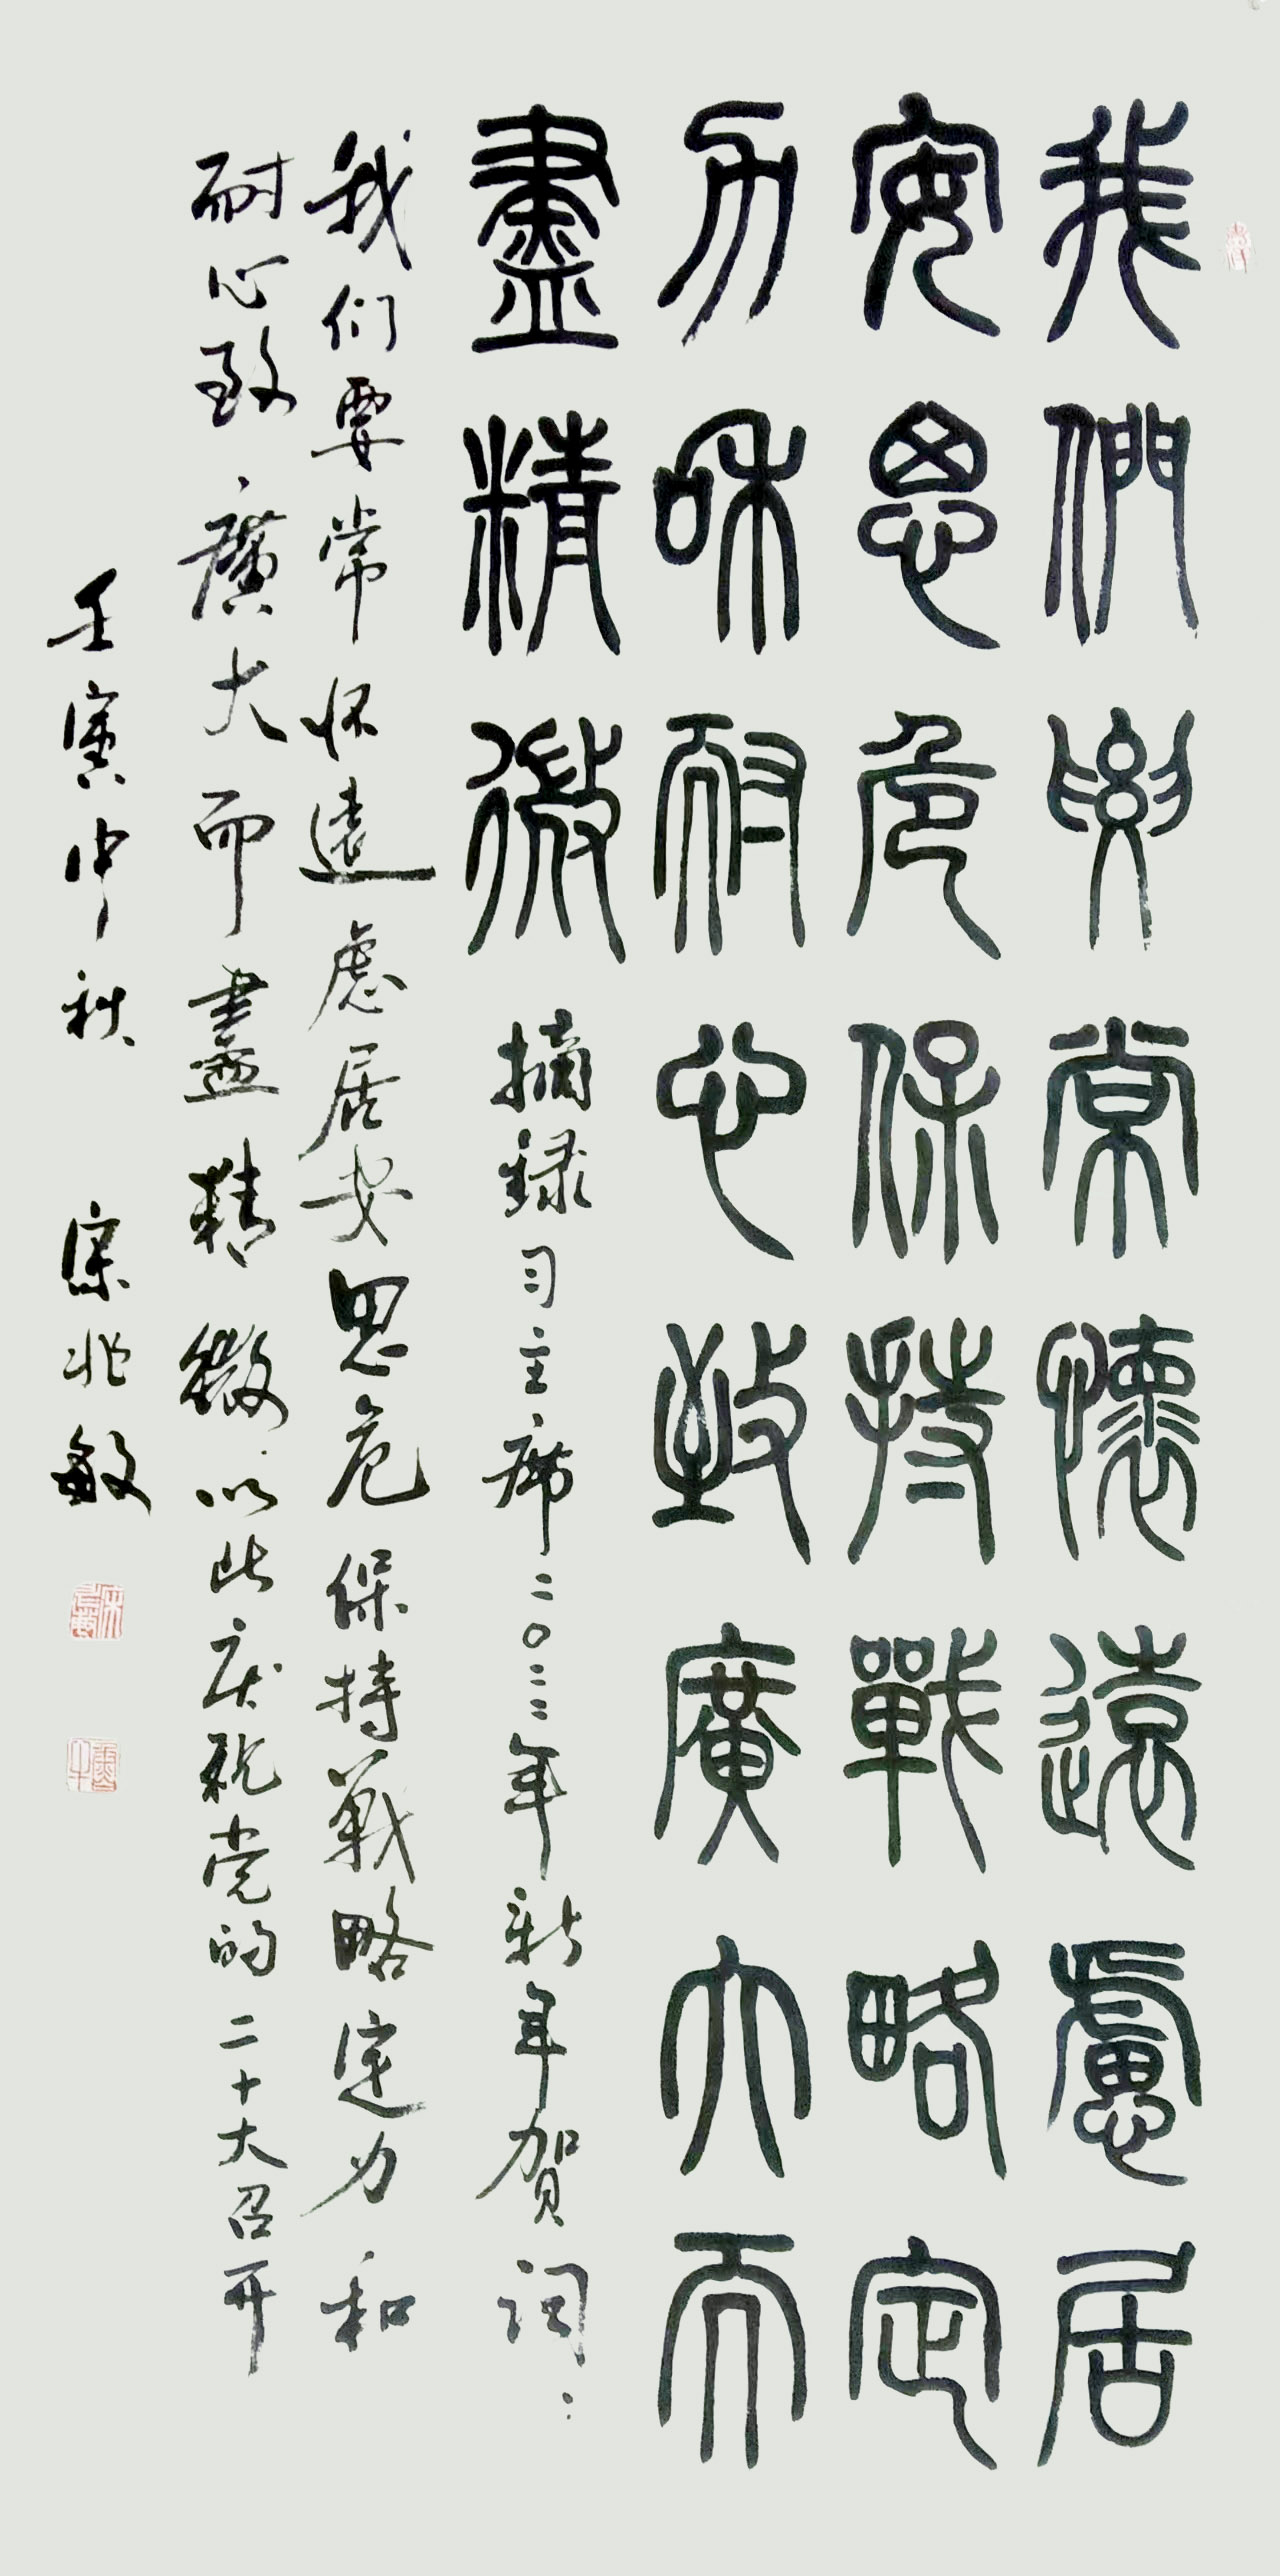 我們要常懷遠慮居
安思危保持戰略定
力和耐心致廣大而
盡精微 摘録习主席二〇二二年新年贺词：
我们要常怀遠慮居安思危保持戰略定力和
耐心致廣大而盡精微以此庆祝党的二十大召开
壬寅中秋 宋兆敏